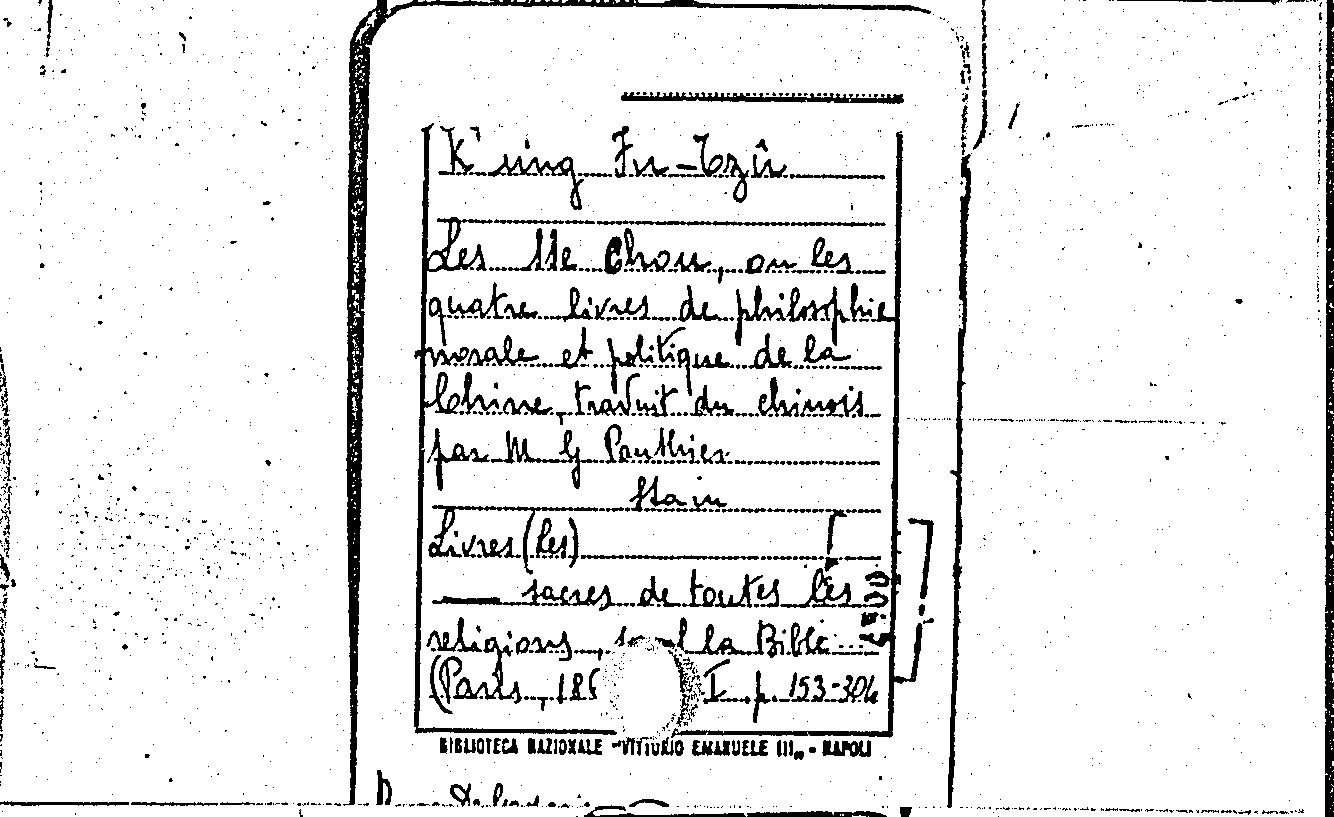 K'ung Fu-Tzŭ
Les Sse Chou, ou les
quatre livres de philosophie
morale et politique de la
Chine, traduit du chinois
par M G Pauthier
Livres (les)
—— sacres de toutes les
religions, sauf la Bible...
(Paris, 186 I. p. 153-304
BIBLIOTECA NAZIONALE "VITTORIO EMANUELE III„ - NAPOLI